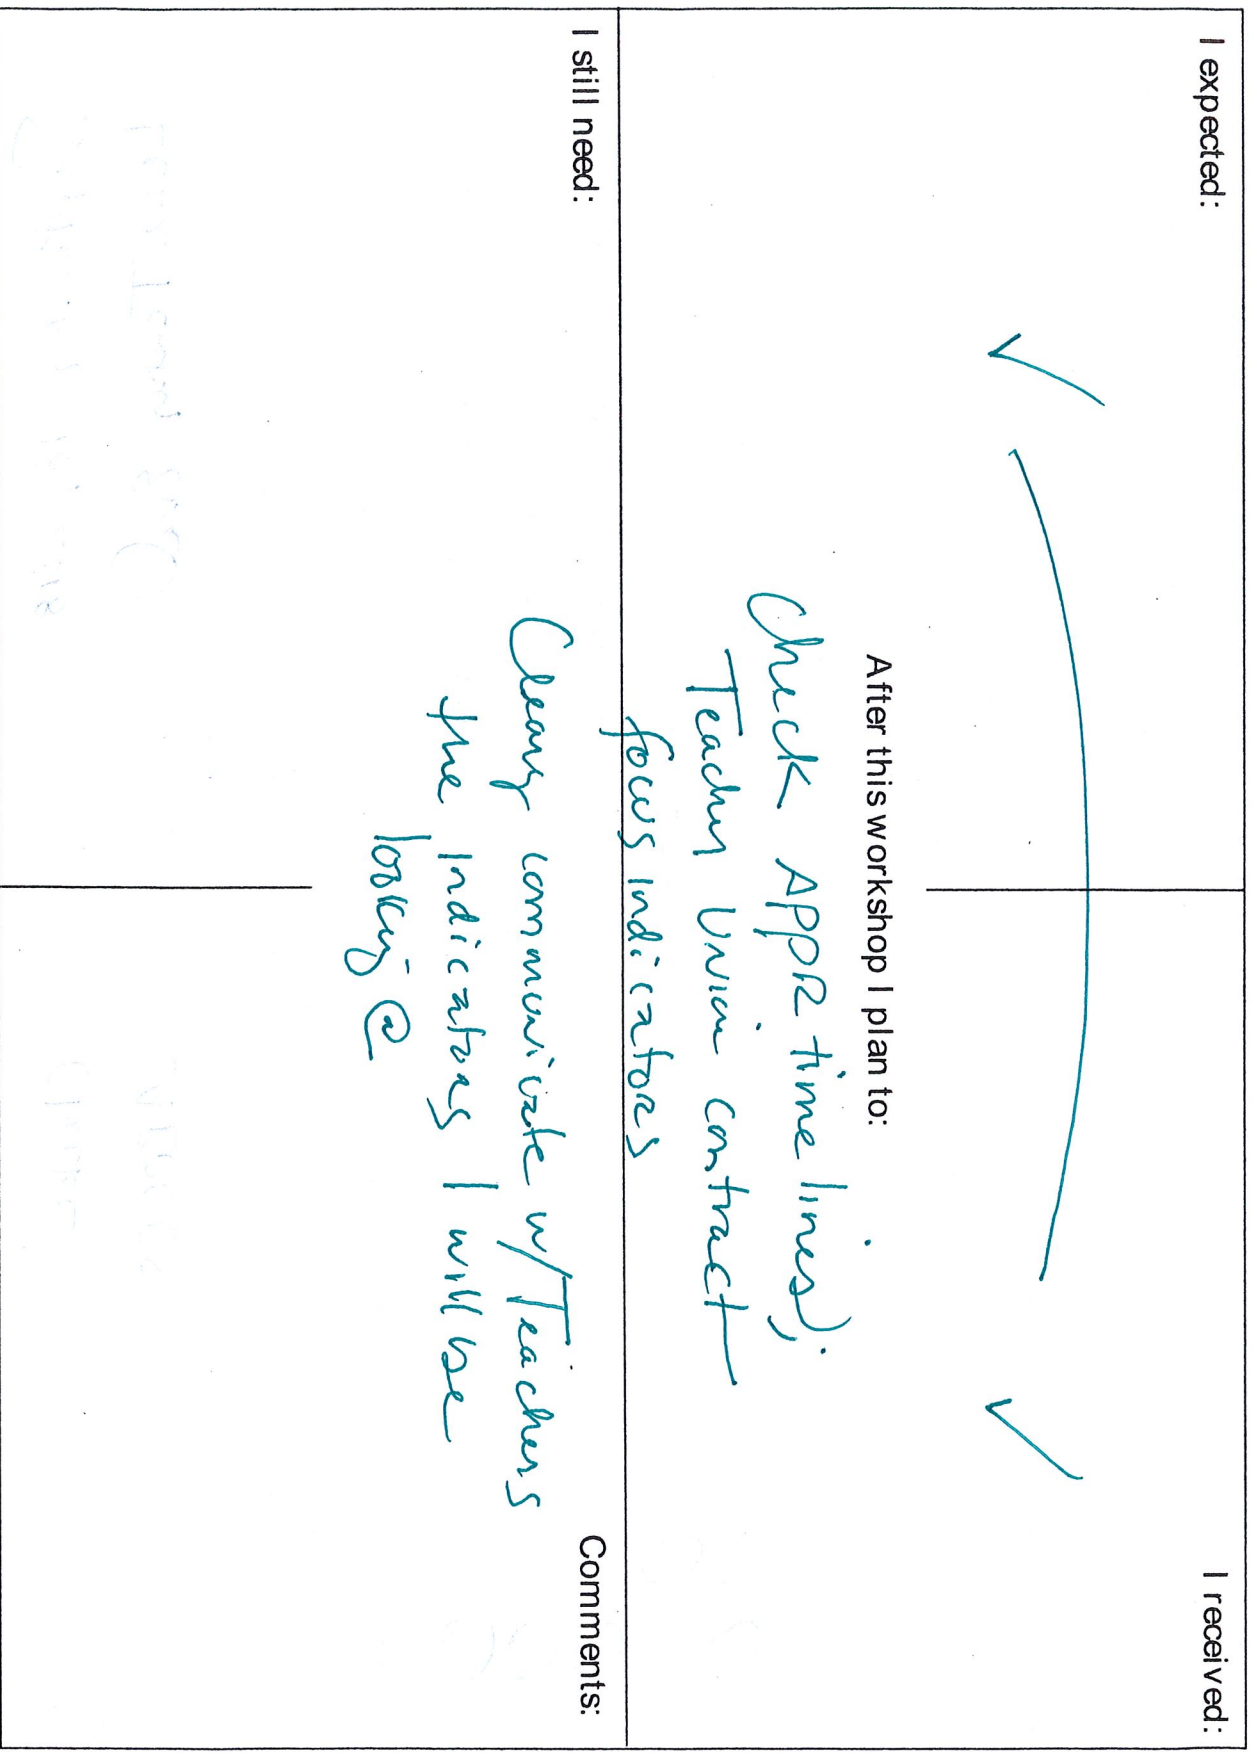 I expected:
I received:
After this workshop I plan to:
Check APPR time lines);
Teacher Union contract
focus indicators
Cleary communicate w/Teachers
the indicators I will be
looking @
I still need:
Comments: